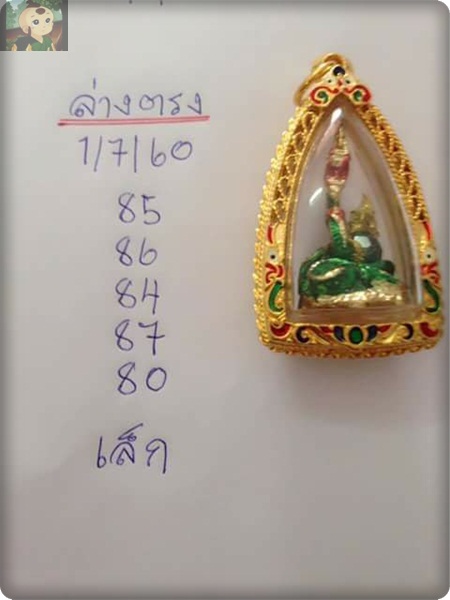 ล่างตรง
1/7/60
85
86
84
87
80
เล็ก